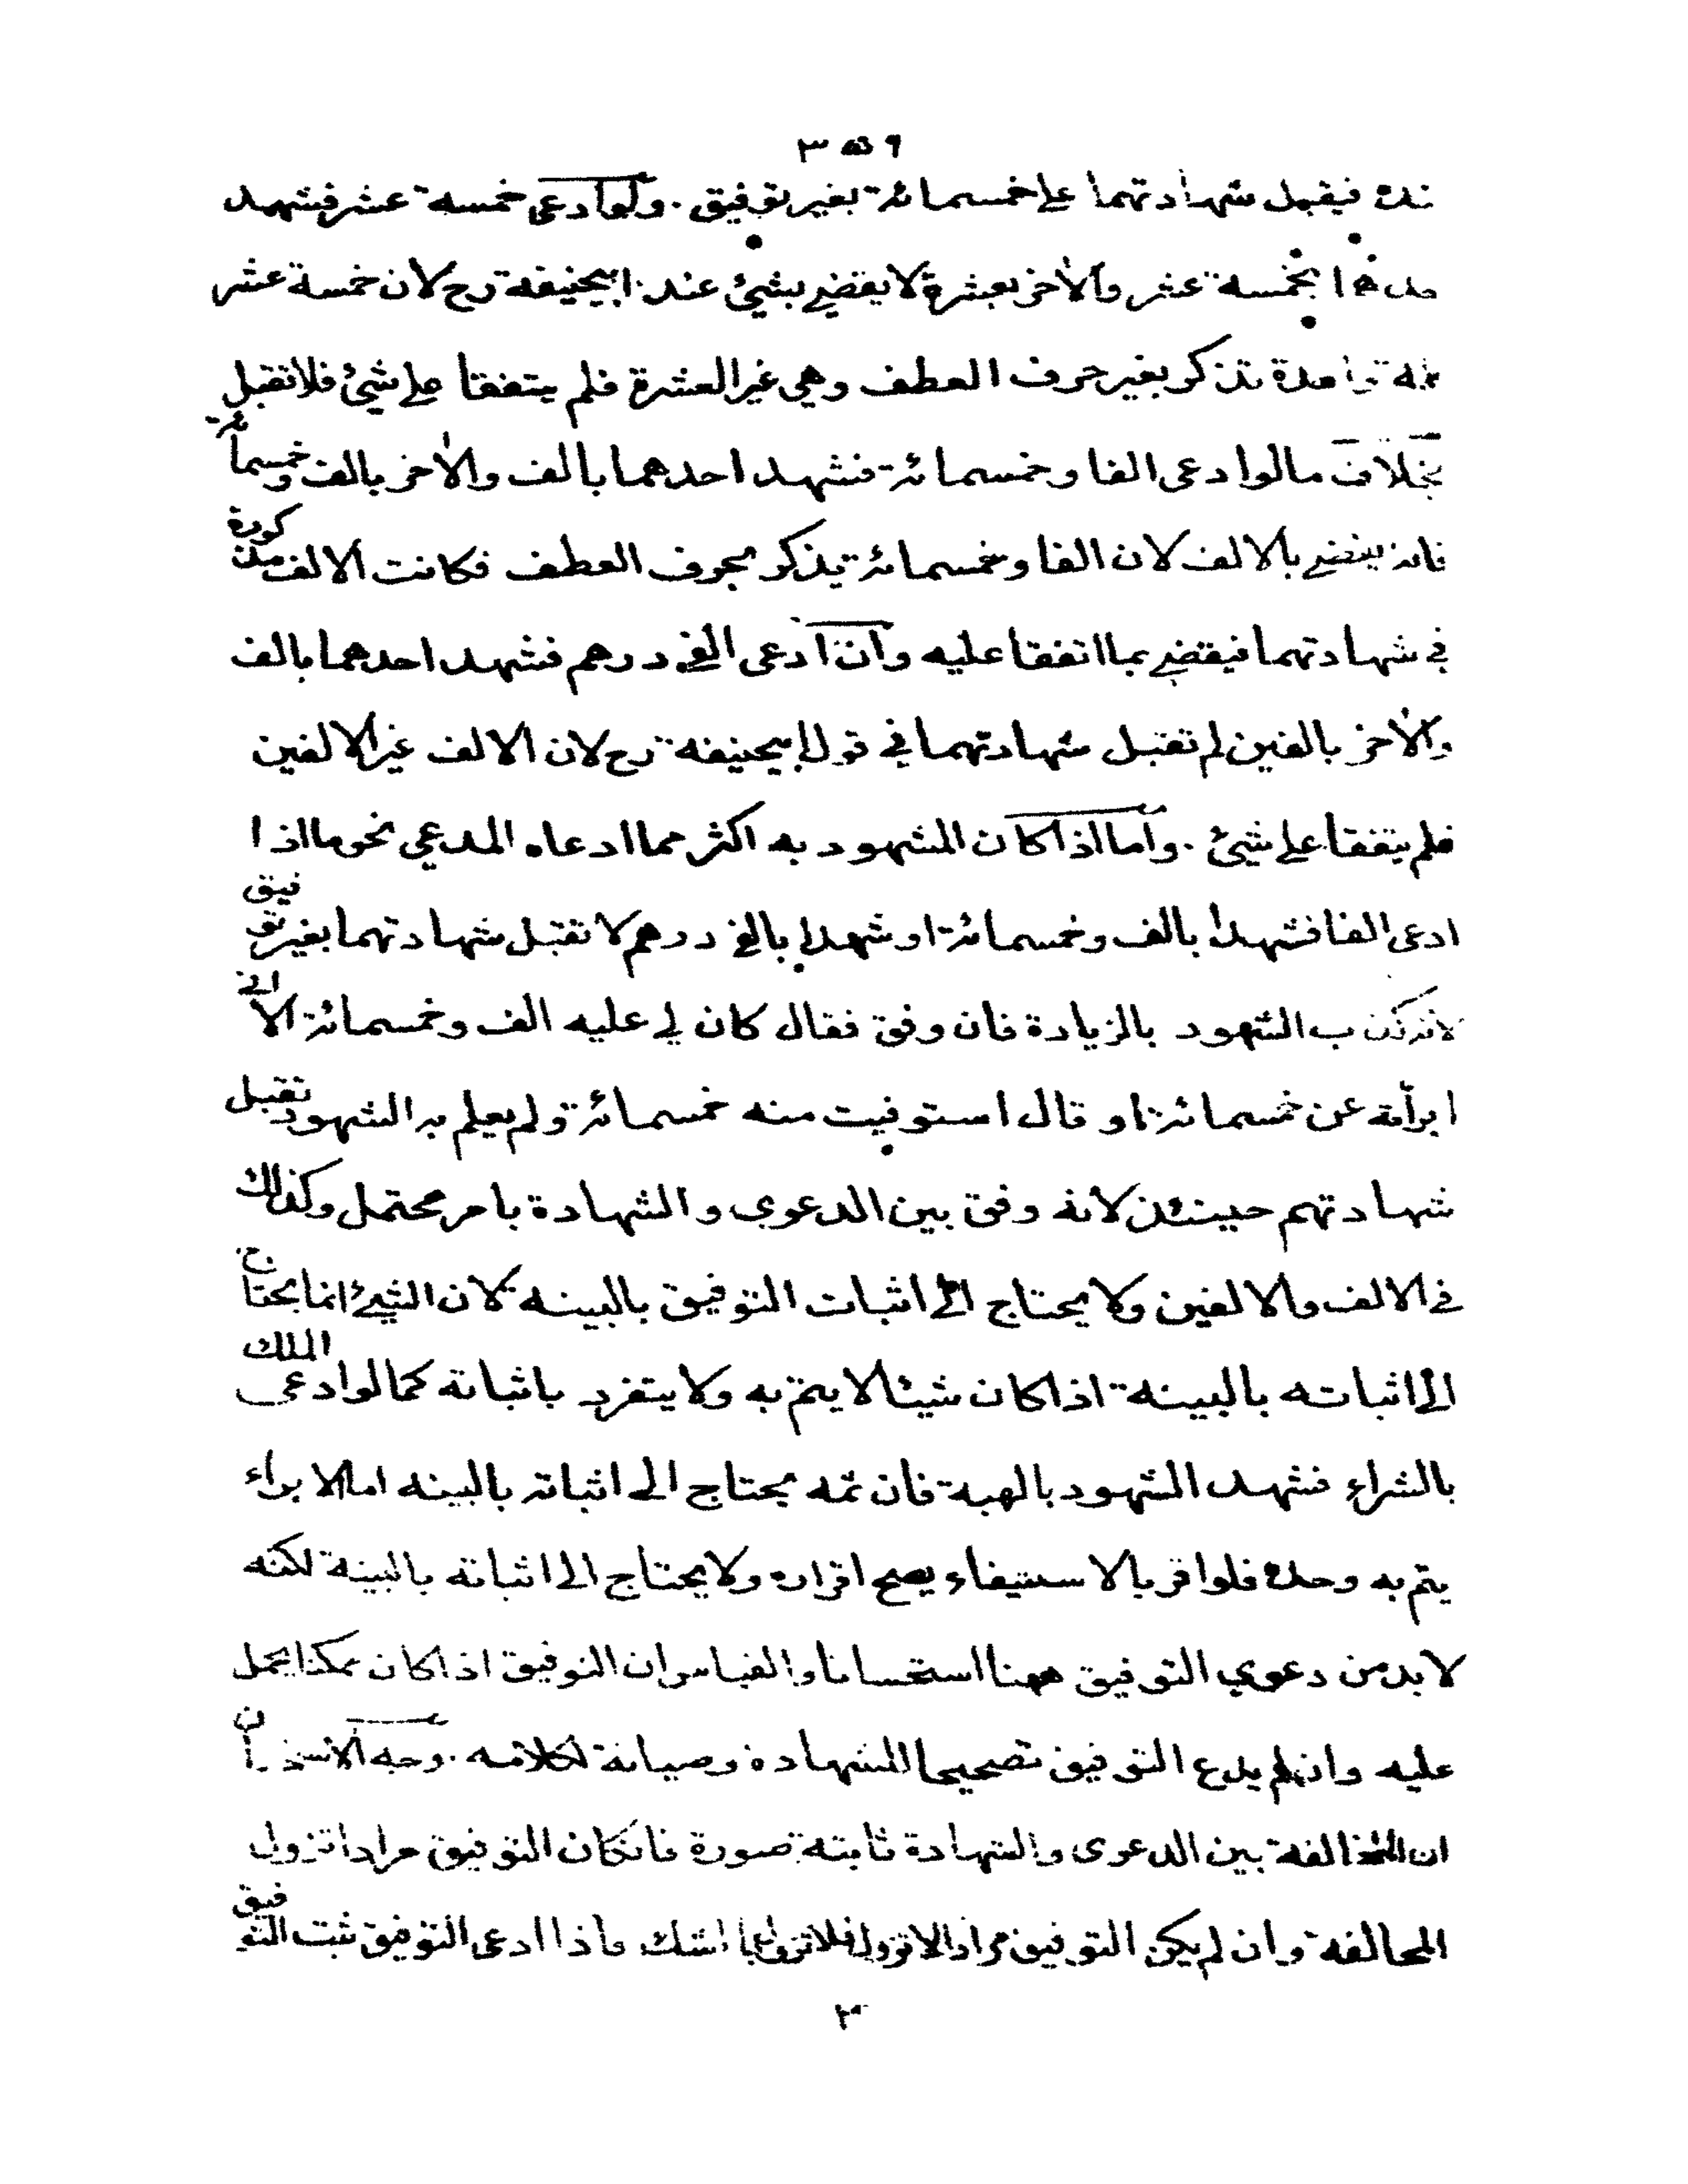 ٣٥٩
فيقبل شهادتهما على خمسمائة بغير توفيق . ولو ادعى خمسة عشر فشهد
بخمسة عشر والآخر بعشرة لا يقضي بشيئ عند ابيحنيفة رح لان خمسة عشر
تذكر بغير حرف العطف وهي غير العشرة فلم يتفقا على شيئ فلا تقبل
بخلاف ما لو ادعى الفا وخمسمائة فشهد احدهما بالف والآخر بالف وخمسمائة
فانه يقضي بالالف لان الفا وخمسمائة يذكر بحرف العطف فكانت الالف مذكورة
في شهادتهما فيقضي بما اتفقا عليه وان ادعى الفي درهم فشهد احدهما بالف
والآخر بالفين لم تقبل شهادتهما في قول ابيحنيفة رح لان الالف غير الالفين
فلم يتفقا على شيئ . واما اذا كان المشهود به اكثر مما ادعاه المدعي نحو ما اذا
ادعى الفا فشهدا بالف وخمسمائة او شهدا بالفي درهم لا تقبل شهادتهما بغير توفيق
لانه كذب الشهود بالزيادة فان وفق فقال كان لي عليه الف وخمسمائة الا اني
ابرأته عن خمسمائة او قال استوفيت منه خمسمائة ولم يعلم به الشهود تقبل
شهادتهم حينئذ لانه وفق بين الدعوى والشهادة بامر محتمل وكذلك
في الالف والالفين ولا يحتاج الى اثبات التوفيق بالبينه لان الشيئ انما يحتاج
الى اثباته بالبينة اذا كان شيئا لا يتم به ولا يتفرد باثباته كما لو ادعى الملك
بالشراء فشهد الشهود بالهبة فان ثمه يحتاج الى اثباته بالبينه اما الابراء
يتم به وحده فلو اقر بالاستيفاء يصح اقراره ولا يحتاج الى اثباته بالبينة لكنه
لا بد من دعوى التوفيق ههنا استحسانا والقياس ان التوفيق اذا كان ممكنا يحمل
عليه وان لم يدع التوفيق تصحيحا للشهادة وصيانة لكلامه . وجه الاستحسان
ان المخالفة بين الدعوى والشهادة ثابتة صورة فان كان التوفيق مرادا تزول
المخالفة وان لم يكن التوفيق مرادا لا تزول فلا تزول بالشك فاذا ادعى التوفيق ثبت التوفيق